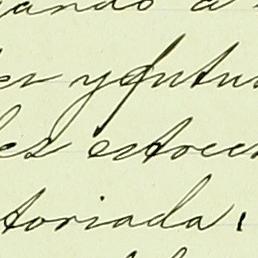 ando a
es y futu
les estrec
toriada,